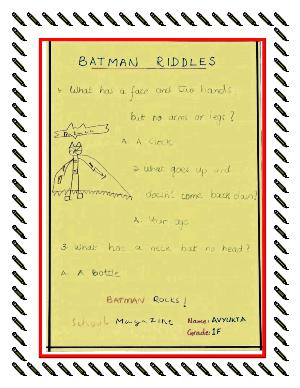 BATMAN RIDDLES
1. What has a face and two hands
but no arms or legs?
A. A Clock
2. What goes up and
doesn't come back down?
A. Your age
3. What has a neck but no head?
A. A Bottle
BATMAN ROCKS!
School Magazine
Name: AVYUKTA
Grade: 1F